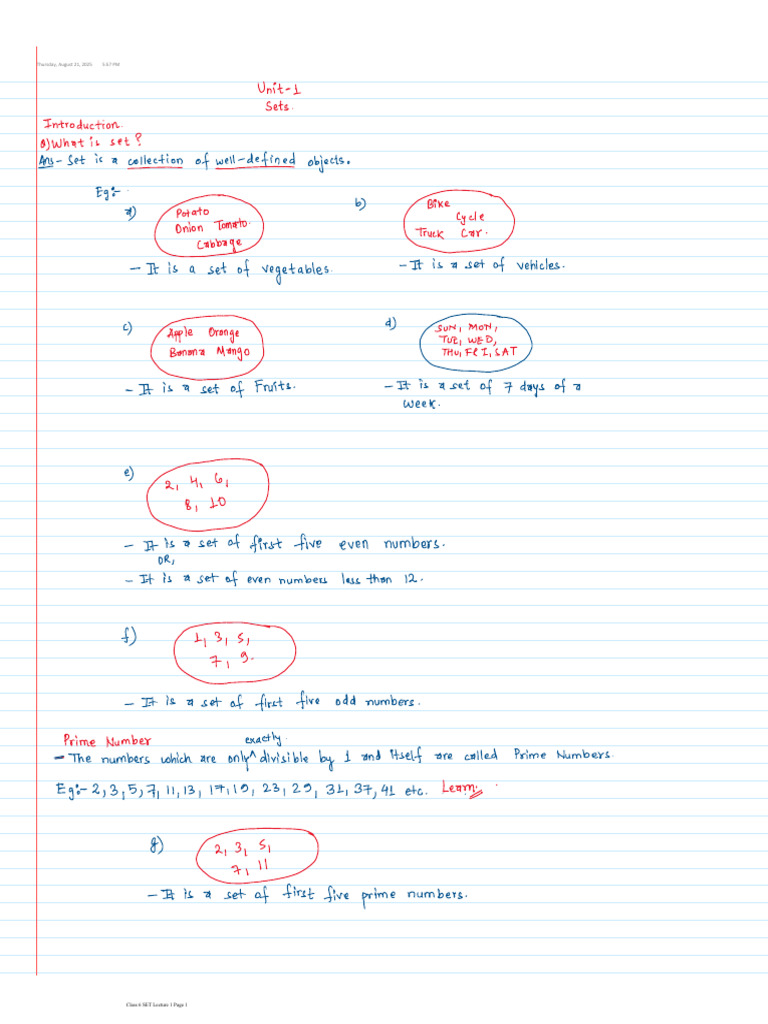 Thursday, August 21, 2025 5:57 PM
Unit-1
Sets.
Introduction.
Q) What is set?
Ans - Set is a collection of well-defined objects.
Eg:-
a)
Potato
Onion Tomato.
Cabbage
- It is a set of vegetables.
b)
Bike
Cycle
Truck Car.
- It is a set of vehicles.
c)
Apple Orange
Banana Mango
- It is a set of Fruits.
d)
SUN, MON,
TUE, WED,
THU, FRI, SAT
- It is a set of 7 days of a
week.
e)
2, 4, 6,
8, 10
- It is a set of first five even numbers.
OR,
- It is a set of even numbers less than 12.
f)
1, 3, 5,
7, 9.
- It is a set of first five odd numbers.
Prime Number
exactly.
- The numbers which are only ^ divisible by 1 and itself are called Prime Numbers.
Eg:- 2, 3, 5, 7, 11, 13, 17, 19, 23, 29, 31, 37, 41 etc. Learn.
g)
2, 3, 5,
7, 11
- It is a set of first five prime numbers.
Class 6 SET Lecture 1 Page 1